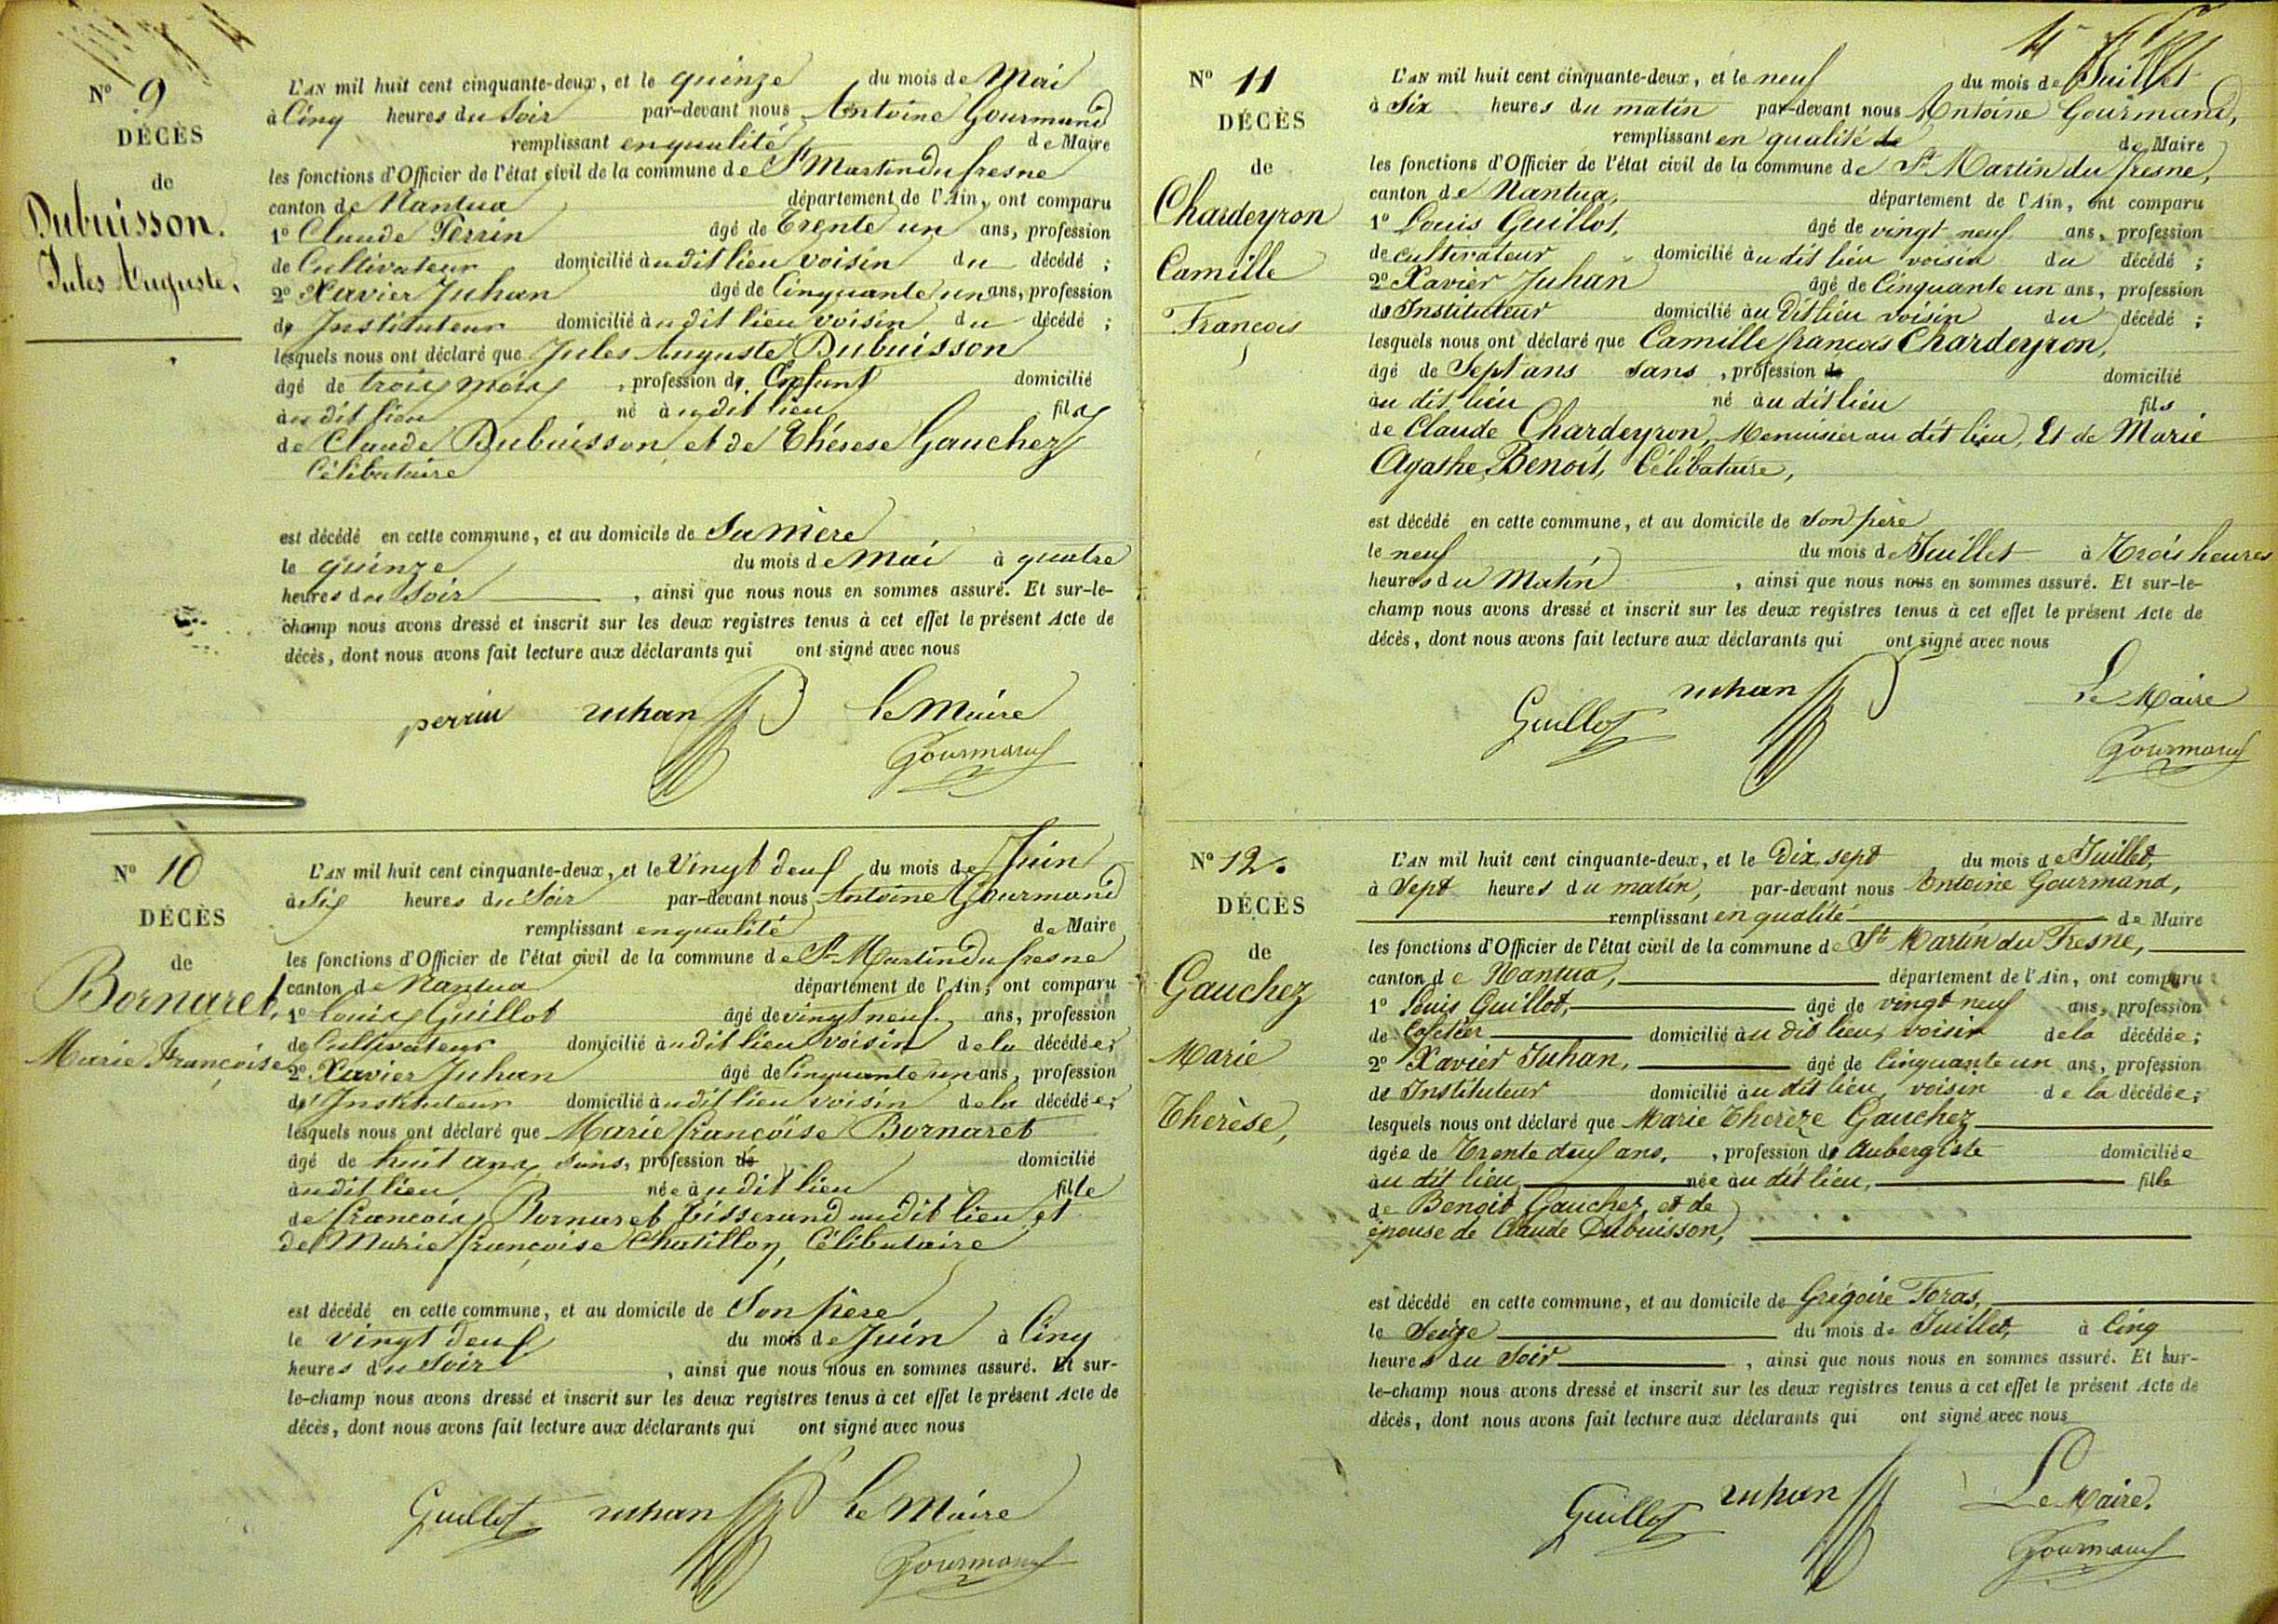 N° 9
DÉCÈS
de
Dubuisson.
Jules Auguste.
L'AN mil huit cent cinquante-deux, et le quinze du mois de Mai
à Cinq heures du Soir par-devant nous Antoine Gourmand
remplissant en qualité de Maire
les fonctions d'Officier de l'état civil de la commune de St Martin du fresne
canton de Nantua département de l'Ain, ont comparu
1° Claude Perrin âgé de Trente un ans, profession
de Cultivateur domicilié audit lieu voisin du décédé ;
2° Xavier Juhan âgé de Cinquante un ans, profession
de Instituteur domicilié audit lieu voisin du décédé ;
lesquels nous ont déclaré que Jules Auguste Dubuisson
âgé de trois mois , profession de Enfant domicilié
audit lieu né à audit lieu fils
de Claude Dubuisson et de Thérèse Gauchez
Célibataire
est décédé en cette commune, et au domicile de Sa Mère
le quinze du mois de Mai à quatre
heures du Soir , ainsi que nous nous en sommes assuré. Et sur-le-
champ nous avons dressé et inscrit sur les deux registres tenus à cet effet le présent Acte de
décès, dont nous avons fait lecture aux déclarants qui ont signé avec nous
perrin Juhan le Maire
Gourmand
N° 10
DÉCÈS
de
Bornaret,
Marie Françoise
L'AN mil huit cent cinquante-deux, et le Vingt deux du mois de Juin
à Six heures du Soir par-devant nous Antoine Gourmand
remplissant en qualité de Maire
les fonctions d'Officier de l'état civil de la commune de St Martin du fresne
canton de Nantua département de l'Ain, ont comparu
1° Louis Guillot âgé de vingt neuf ans, profession
de Cultivateur domicilié audit lieu voisin de la décédée ;
2° Xavier Juhan âgé de Cinquante un ans, profession
de Instituteur domicilié audit lieu voisin de la décédée ;
lesquels nous ont déclaré que Marie françoise Bornaret
âgé de huit ans, sans, profession de domicilié
audit lieu née audit lieu fille
de françois Bornaret Tisserand audit lieu et
de Marie françoise Chatillon, Célibataire
est décédé en cette commune, et au domicile de Son père
le vingt deux du mois de Juin à Cinq
heures du Soir , ainsi que nous nous en sommes assuré. Et sur-
le-champ nous avons dressé et inscrit sur les deux registres tenus à cet effet le présent Acte de
décès, dont nous avons fait lecture aux déclarants qui ont signé avec nous
Guillot Juhan le Maire
Gourmand
N° 11
DÉCÈS
de
Chardeyron
Camille
François
L'AN mil huit cent cinquante-deux, et le neuf du mois de Juillet
à Six heures du matin par-devant nous Antoine Gourmand,
remplissant en qualité de de Maire
les fonctions d'Officier de l'état civil de la commune de St Martin du fresne,
canton de Nantua, département de l'Ain, ont comparu
1° Louis Guillot, âgé de vingt neuf ans, profession
de cultivateur domicilié au dit lieu voisin du décédé ;
2° Xavier Juhan âgé de Cinquante un ans, profession
de Instituteur domicilié au dit lieu voisin du décédé ;
lesquels nous ont déclaré que Camille françois Chardeyron,
âgé de Sept ans sans , profession de domicilié
au dit lieu né au dit lieu fils
de Claude Chardeyron, Menuisier au dit lieu, Et de Marie
Agathe Benoit, Célibataire,
est décédé en cette commune, et au domicile de son père
le neuf du mois de Juillet à Trois heures
heures du Matin , ainsi que nous nous en sommes assuré. Et sur-le-
champ nous avons dressé et inscrit sur les deux registres tenus à cet effet le présent Acte de
décès, dont nous avons fait lecture aux déclarants qui ont signé avec nous
Guillot Juhan Le Maire
Gourmand
N° 12.
DÉCÈS
de
Gauchez
Marie
Thérèse,
L'AN mil huit cent cinquante-deux, et le Dix sept du mois de Juillet,
à Sept heures du matin, par-devant nous Antoine Gourmand,
remplissant en qualité de Maire
les fonctions d'Officier de l'état civil de la commune de St Martin du Fresne,
canton de Nantua, département de l'Ain, ont comparu
1° Louis Guillot, âgé de vingt neuf ans, profession
de domicilié au dit lieu, voisin de la décédée ;
2° Xavier Juhan, âgé de Cinquante un ans, profession
de Instituteur domicilié au dit lieu, voisin de la décédée ;
lesquels nous ont déclaré que Marie Thérèze Gauchez
âgée de Trente deux ans, , profession de Aubergiste domiciliée
au dit lieu, née au dit lieu, fille
de Benoit Gauchez, et de
épouse de Claude Dubuisson,
est décédé en cette commune, et au domicile de Grégoire Foras,
le Seize du mois de Juillet, à Cinq
heures du Soir , ainsi que nous nous en sommes assuré. Et sur-
le-champ nous avons dressé et inscrit sur les deux registres tenus à cet effet le présent Acte de
décès, dont nous avons fait lecture aux déclarants qui ont signé avec nous
Guillot Juhan Le Maire.
Gourmand